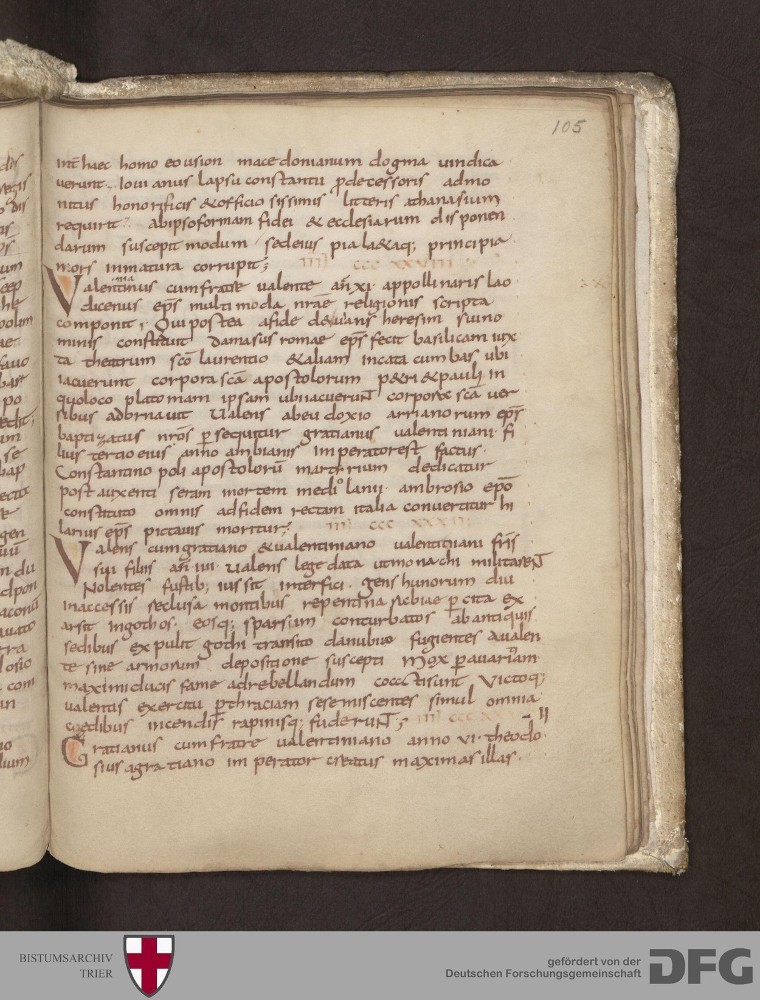 105
int haec homo eo usion macedonianum dogma vindica
uerunt. Iouianus lapsu constantii p̄decessoris admo
nitus honorificis & officiosissimis litteris athanasium
requirit. ab ipso formam fidei & ecclesiarum disponen
darum suscepit modum. sed eius pia la&aq; principia
mors inmatura corrupit; IIII CCC XXVIII
Valentinianus cum fratre ualente an̄ xi. appollinaris lao
dicenus ep̄s multimoda nr̄ae religionis scripta
componit, qui postea a fide deuians heresim sui no
minis constituit damasus romae ep̄s fecit basilicam iux
ta theatrum sc̄o laurentio & aliam in catacumbas ubi
iacuerunt corpora sc̄a apostolorum p&ri & pauli, in
quo loco platomam ipsam ubi iacuerunt corpora sc̄a uer
sibus adornauit. Ualens ab eudoxio arrianorum ep̄s
baptizatus nr̄os p̄sequitur gratianus ualentiniani. fi
lius tertio eius anno ambianis imperator est factus.
Constantinopoli apostolorū martyrium dedicatur
post auxentii seram mortem mediolanii. ambrosio ep̄o
constituto omnis ad fidem rectam italia conuertitur hi
larius ep̄s pictauis moritur; IIII CCC XXXIII
Valens cum gratiano & ualentiniano ualentiniani fr̄is
sui filiis an̄ iiii. Ualens lege data ut monachi militarent
Nolentes fustib; iussit interfici. gens hunorum diu
inaccessis seclusa montibus repentina rabiae p̄cita ex
arsit in gothos. eosq; sparsim conturbatos ab antiquis
sedibus expulit gothi transito danubio fugientes a ualen
te sine armorum depositione suscepti mox p̄ auaritiam
maximi ducis fame ad rebellandum coacti sunt. Victoq;
ualentis exercitu p̄ thraciam sese miscentes simul omnia
caedibus incendiis rapinisq; fuderunt; IIII CCC X
Gratianus cum fratre ualentiniano anno vi. theodo
sius a gratiano imperator creatus maximas illas.
BISTUMSARCHIV
TRIER
gefördert von der
Deutschen Forschungsgemeinschaft
DFG